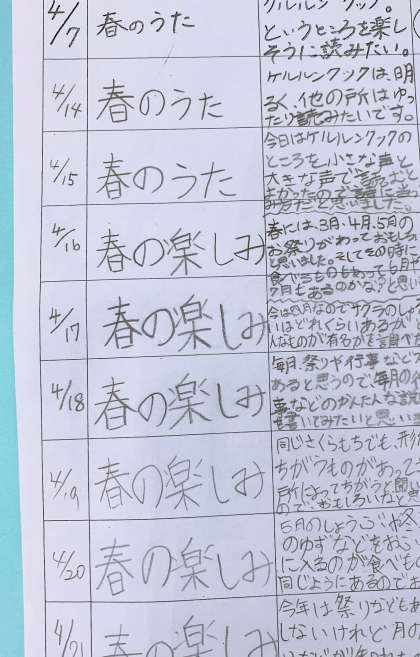 4/7
春のうた
ケルルンクック。
というところを楽し
そうに読みたい。
4/14
春のうた
ケルルンクックは、明
るく、他の所はゆっ
たり読みたいです。
4/15
春のうた
今日はケルルンクックの
ところを小さな声と
大きな声で
思いました。
4/16
春の楽しみ
春には、3月・4月、5月の
お祭りがあっておもしろ
と思いました。そしてその時に
食べるものもあっても6月
7月もあるのかな?と思い
4/17
春の楽しみ
今は四月なのでサクラのしゅ
いはどれくらいあるか
人なものが有名かを調べ
4/18
春の楽しみ
毎月、祭りや行事など
あると思うので、毎月の
事などのかんたんな説
を書いてみたいと思い
4/19
春の楽しみ
同じさくらもちでも、形
ちがうものがあって
所によってちがうと聞い
ので、おもしろいなと
4/20
春の楽しみ
5月のしょうぶや冬
のゆずなどをおふ
に入るのが食べもの
同じようにあるのでお
4/21
春の楽しみ
今年は祭りなどもあ
しないけれど月の